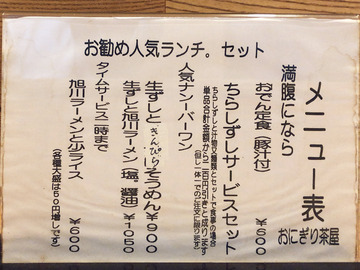 お勧め人気ランチ。セット
メニュー表
おにぎり茶屋
満腹になら
おでん定食(豚汁付)
¥600
ちらしずしサービスセット
ちらしずしと汁物又麺類とセットで食事の場合
単品合計金額から二百円引きと成ります
(但し一体一でのご注文に限ります)
人気ナンバーワン
生ずしときんぴらそうめん ¥900
生ずしと旭川ラーメン(塩。醤油) ¥1050
タイムサービス二時まで
旭川ラーメンと少ライス ¥600
(各種大盛は50円増しです)